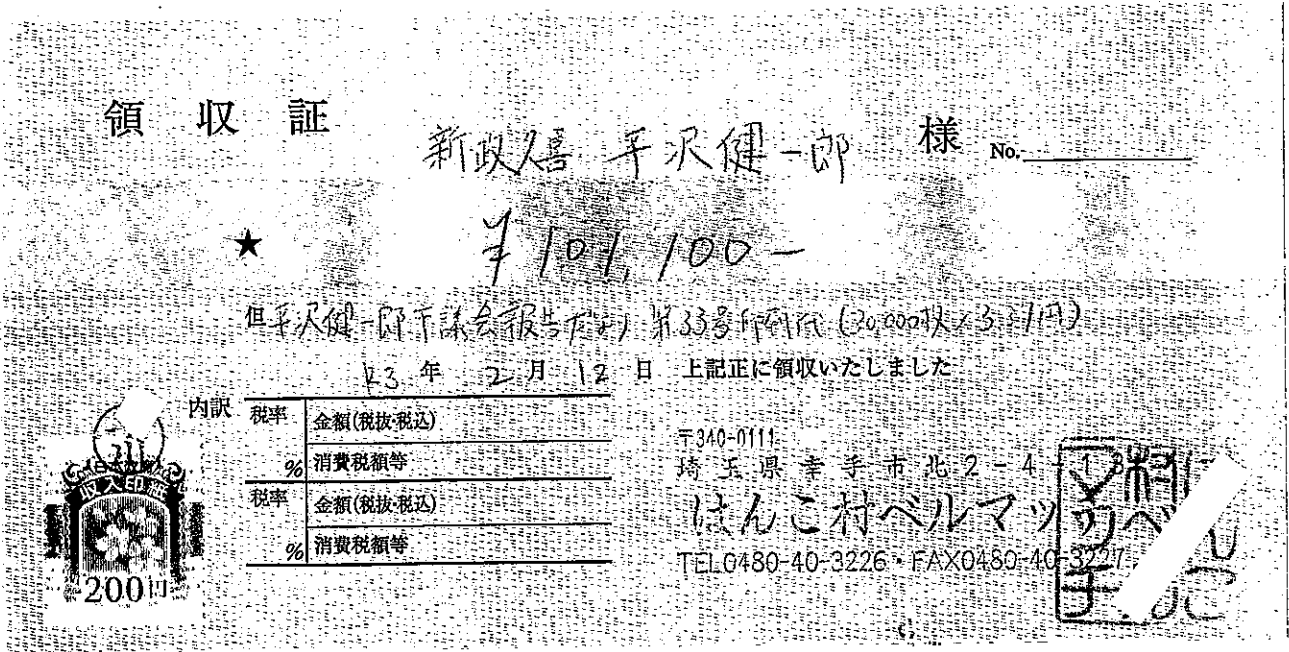 領収証
新政久喜 平沢健一郎 様 No.
★ ¥101,100-
但 平沢健一郎市議会報告だより 第33号印刷代 (30,000枚×3.37円)
R3年 2月 12日 上記正に領収いたしました
内訳 税率 金額(税抜・税込)
% 消費税額等
税率 金額(税抜・税込)
% 消費税額等
〒340-0111
埼玉県幸手市北2-4-13
はんこ村ベルマッ
TEL0480-40-3226・FAX0480-40-3227
収入印紙
200円